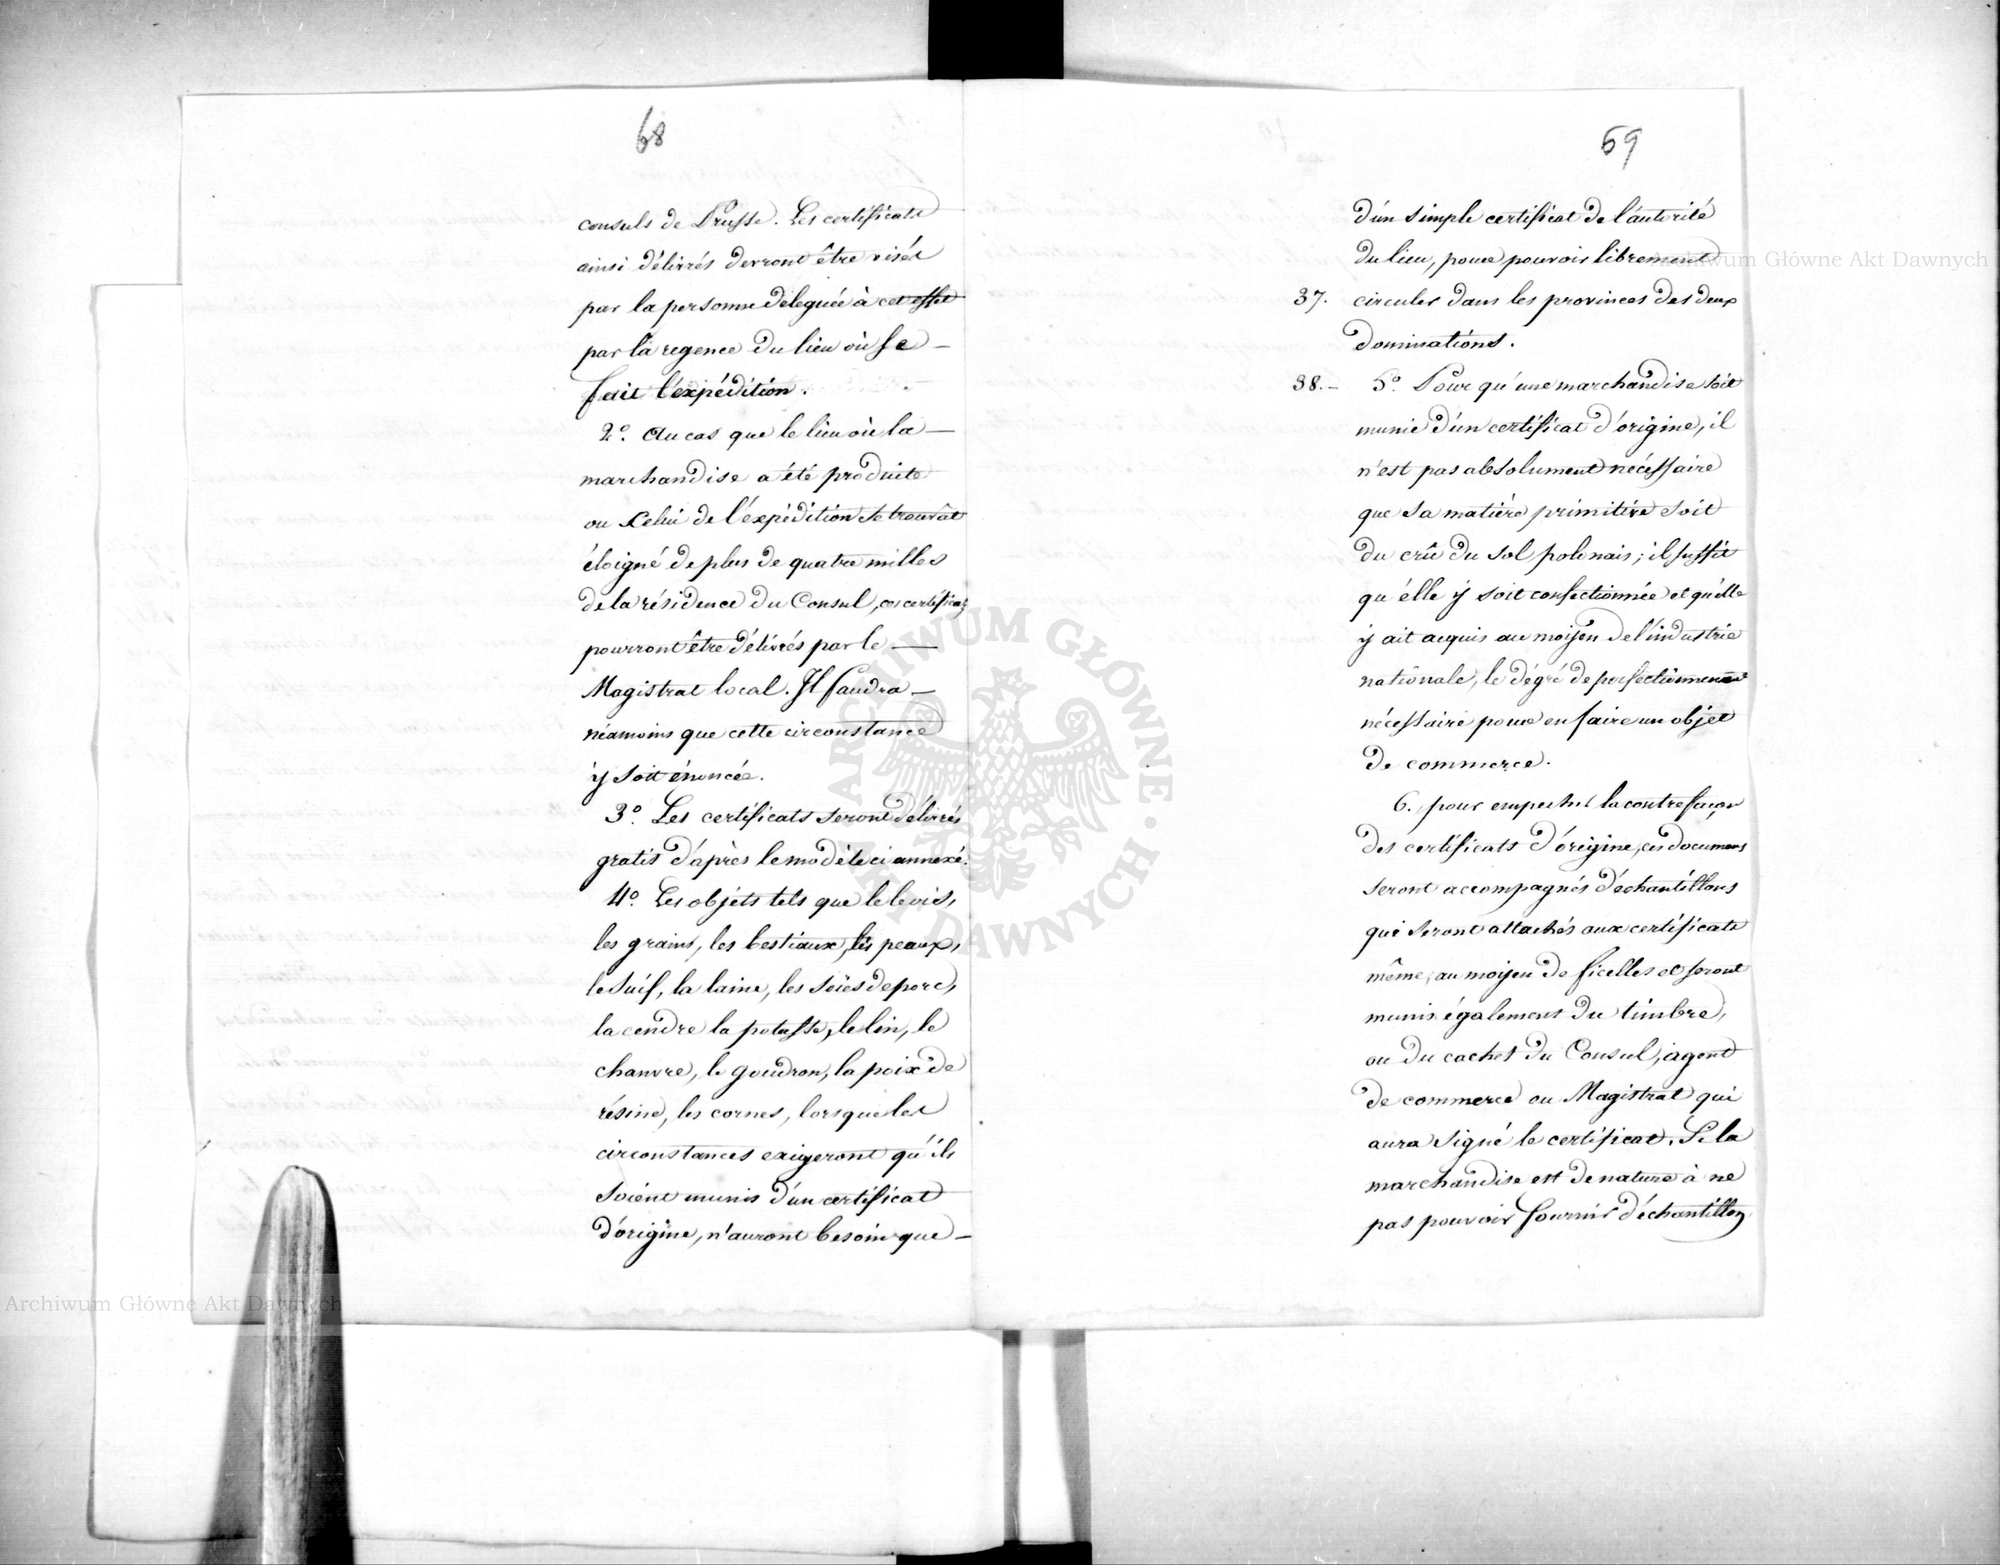 68
consuls de Prusse. Les certificats
ainsi délivrés devront être visés
par la personne déleguée à cet effet
par la regence du lieu où se
fait l'expédition.
2º. Au cas que le lieu où la
marchandise a été produite
ou celui de l'éxpédition se trouvât
éloigné de plus de quatre milles
de la résidence du Consul, ces certificats
pourront être délivrés par le
Magistrat local. Il faudra
néamoins que cette circonstance
y soit énoncée.
3º. Les certificats seront délivrés
gratis d'après le modèle ci annexé.
4º. Les objets tels que le bois,
les grains, les bestiaux, les peaux,
le suif, la laine, les soies de porc,
la cendre la potasse, le lin, le
chanvre, le goudron, la poix de
résine, les cornes, lorsque les
circonstances exigeront qu'ils
soient munis d'un certificat
d'origine, n'auront besoin que
69
d'un simple certificat de l'autorité
du lieu, pour pouvoir librement
37. circuler dans les provinces des deux
dominations.
38. 5º. Pour qu'une marchandise soit
munie d'un certificat d'origine, il
n'est pas absolument nécessaire
que sa matière primitive soit
du crû du sol polonais; il suffit
qu'elle y soit confectionnée et qu'elle
y ait acquis au moyen de l'industrie
nationale, le dégré de perfectionnement
nécessaire pour en faire un objet
de commerce.
6. pour empecher la contrefaçon
des certificats d'origine, ces documens
seront accompagnés d'échantillons
qui seront attachés aux certificats
même, au moyen de ficelles et seront
munis également du timbre,
ou du cachet du Consul, agent
de commerce ou Magistrat qui
aura signé le certificat. Si la
marchandise est de nature à ne
pas pouvoir fournir d'échantillon
Archiwum Główne Akt Dawnych
ARCHIWUM GŁÓWNE AKT DAWNYCH
Archiwum Główne Akt Dawnych